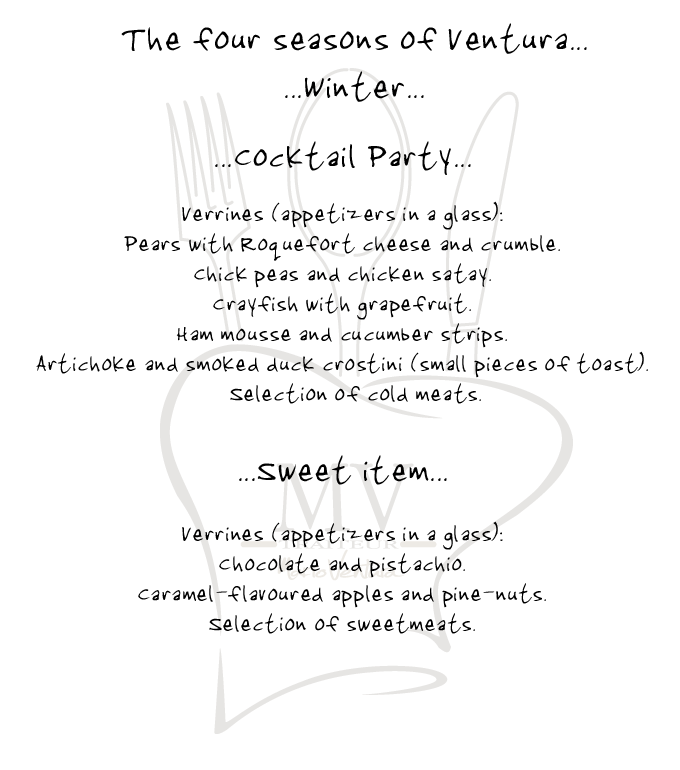 The four seasons of Ventura...
...Winter...
...Cocktail Party...
Verrines (appetizers in a glass):
Pears with Roquefort cheese and crumble.
Chick peas and chicken satay.
Crayfish with grapefruit.
Ham mousse and cucumber strips.
Artichoke and smoked duck crostini (small pieces of toast).
Selection of cold meats.
...Sweet item...
MV
Verrines (appetizers in a glass):
TRAITEUR
Chocolate and pistachio.
Caramel-flavoured apples and pine-nuts.
Selection of sweetmeats.